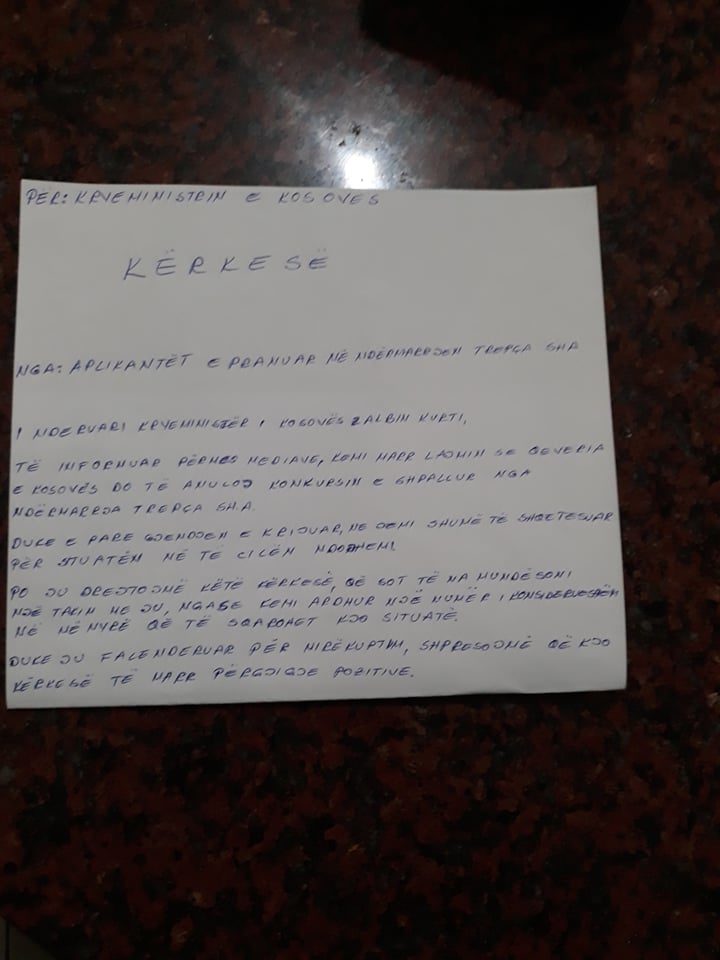 PËR: KRYEMINISTRIN E KOSOVES
KËRKESË
NGA: APLIKANTËT E PRANUAR NË NDËRMARRJEN TREPÇA SHA
I NDERUARI KRYEMINISTËR I KOSOVËS Z ALBIN KURTI,
TË INFORMUAR PËRMES MEDIAVE, KEMI MARR LAJMIN SE QEVERIA
E KOSOVËS DO TË ANULOJ KONKURSIN E SHPALLUR NGA
NDËRMARRJA TREPÇA SHA.
DUKE E PARE GJENDJEN E KRIJUAR, NE JEMI SHUMË TË SHQETESUAR
PËR SITUATËN NË TE CILËN NDODHEMI.
PO JU DREJTOJMË KËTË KËRKESË, QË SOT TË NA MUNDËSONI
NJË TAKIM ME JU, NGASE KEMI ARDHUR NJË NUMËR I KONSIDERUESHËM
NË MËNYRË QË TË SQAROHET KJO SITUATË.
DUKE JU FALENDERUAR PËR MIRËKUPTIM, SHPRESOJMË QË KJO
KËRKESË TË MARR PËRGJIGJE POZITIVE.